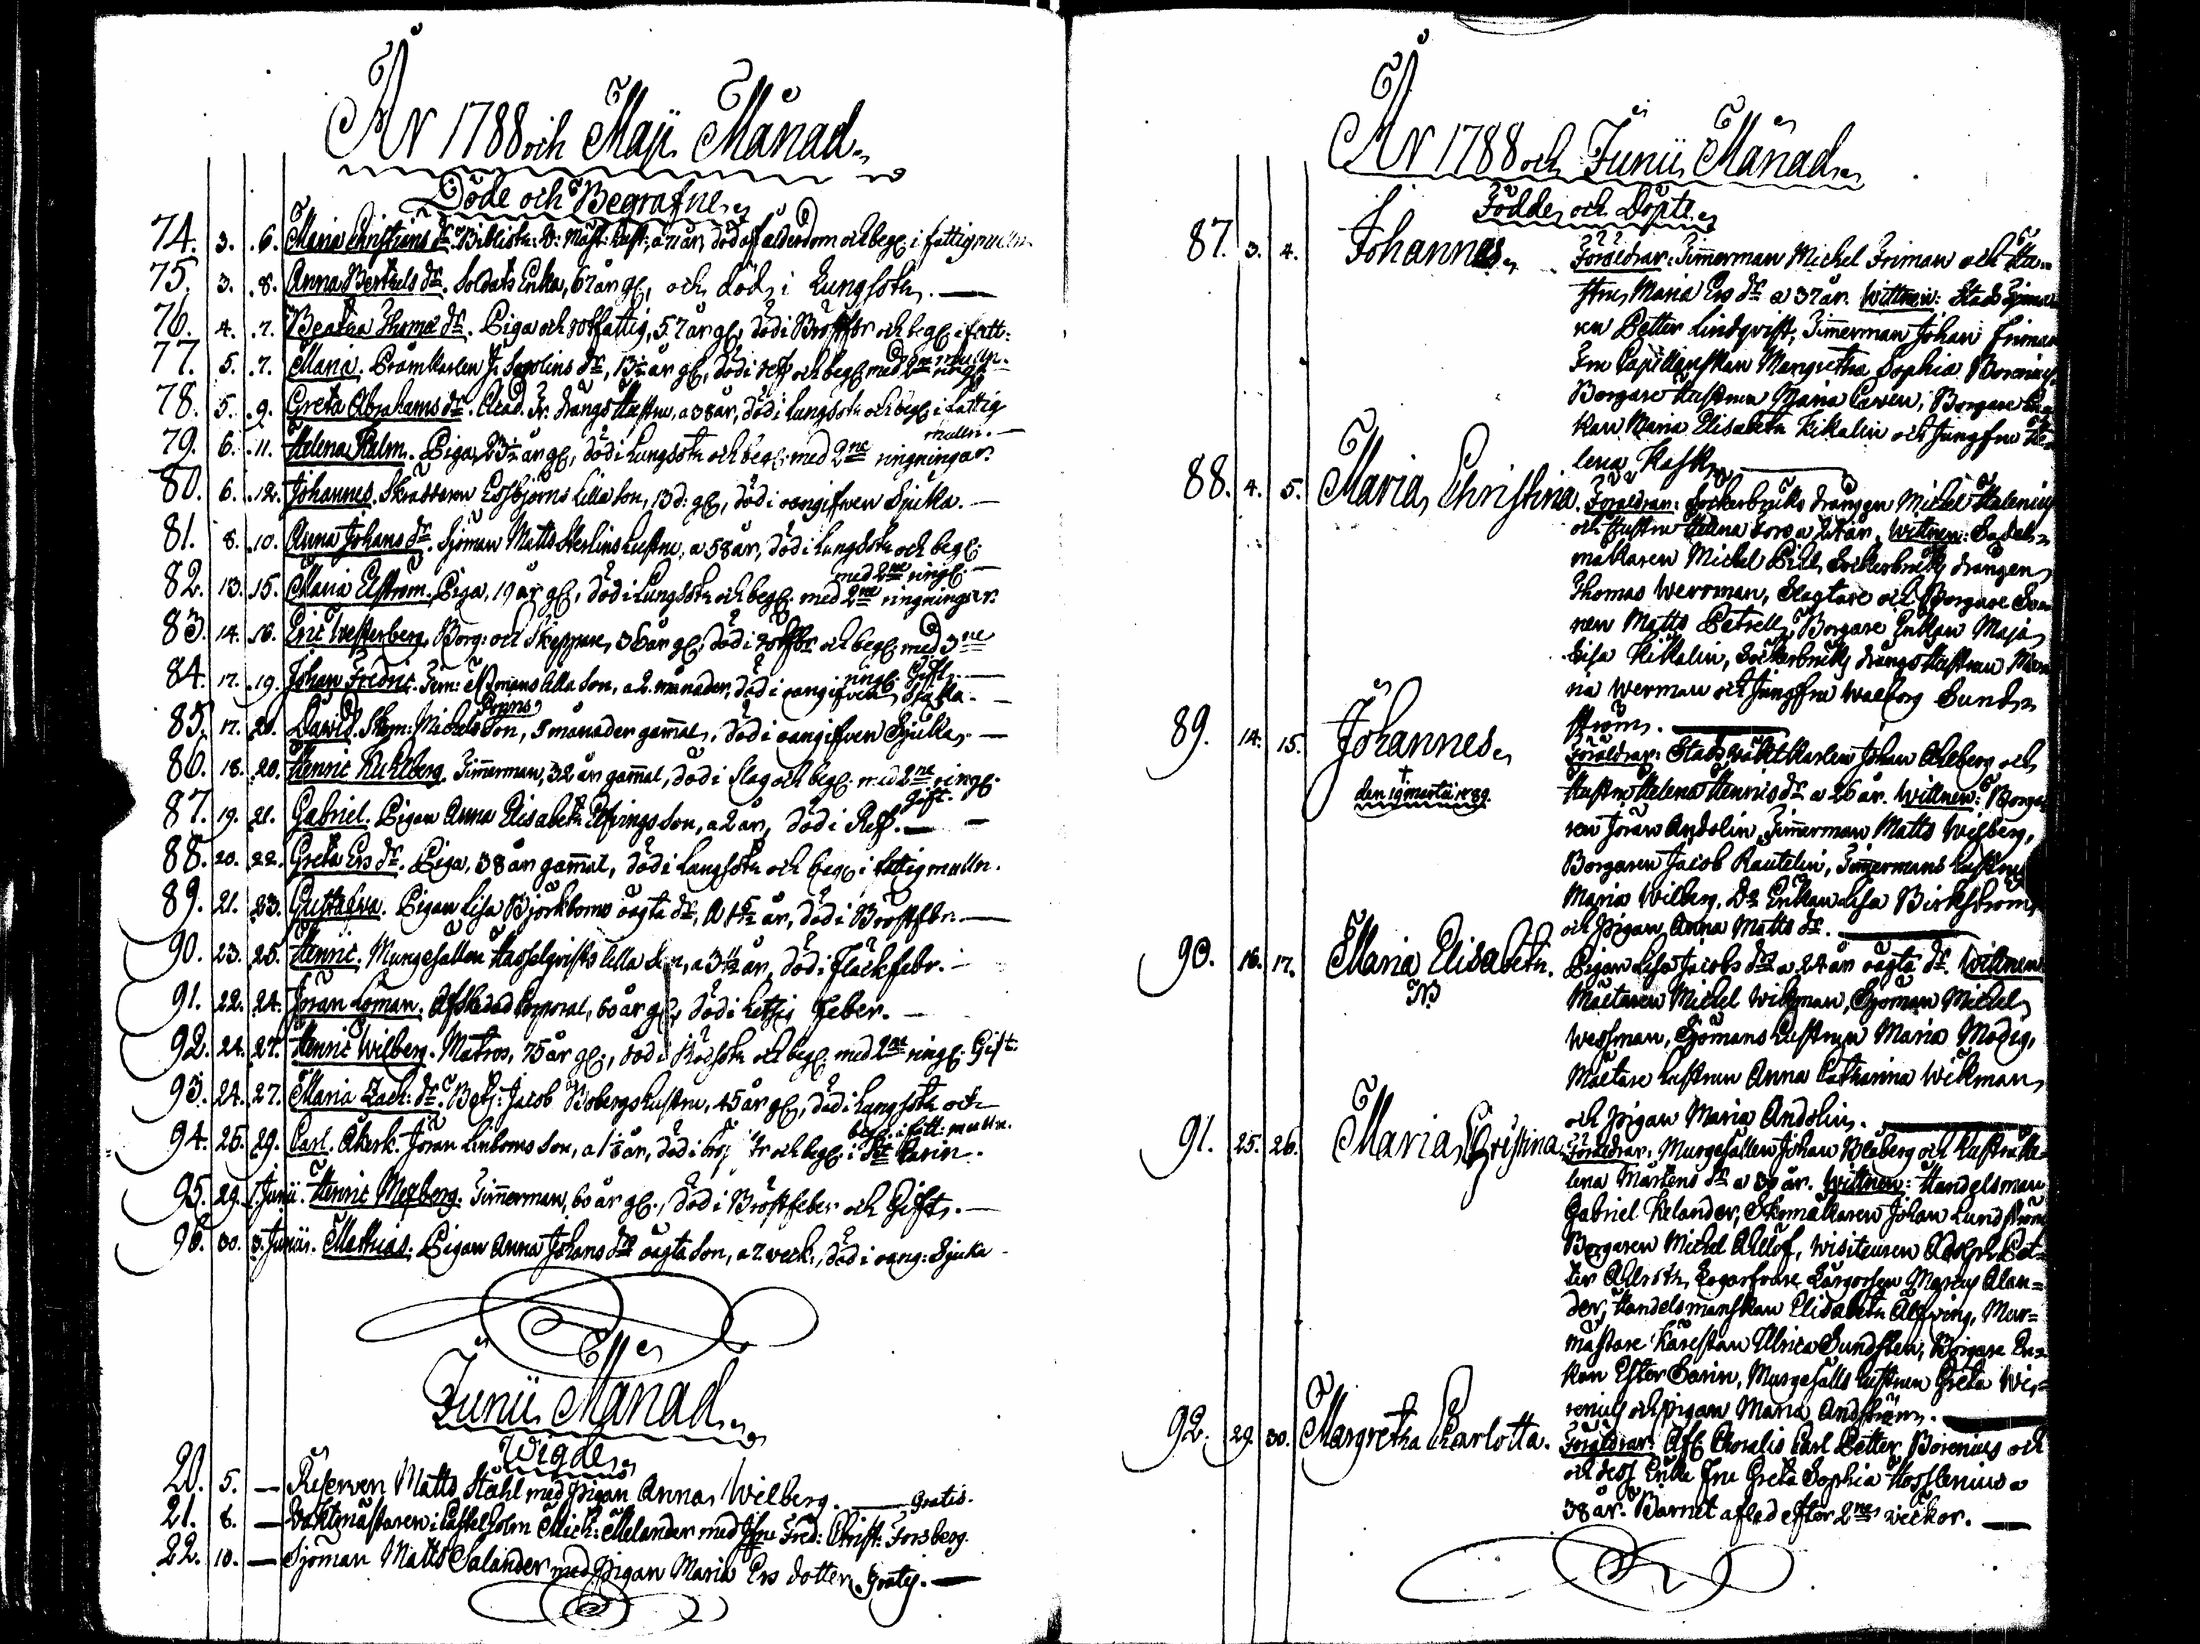 År 1788 och Maji Månad.
Döde och Begrafne.
74. 3. 6. Maria Christians dr. död af ålderdom och begr: i fattigmulln
75. 3. 8. Anna Berthels dr. Soldats Enka, 67 år gl, och död i Lungsoth.
76. 4. 7. Beata Thomæ dr. Piga och rotfattig, 57 år gl, död i Bröstfbr och begr: i fatt:
mulln.
77. 5. 7. Maria. Pråmkarlen J. dr, 13½ år gl, död i och begr med 2ne ringr
78. 5. 9. Greta Abrahams dr. Acad. Tr. drängs Hustru, a 38 år, död i Lungsoth och begr i fattig
mulln.
79. 6. 11. Helena Palm. Piga, 23½ år gl, död i Lungsoth och begr: med 2ne ringningar.
80. 6. 12. Johannes. Skräddaren Essbjörns lilla Son, 13 d: gl, död i oangifwen Sjuka.
81. 8. 10. Anna Johans dr. Sjöman Matts Hustru, a 58 år, död i Lungsoth och begr:
med 2ne ringr:
82. 13. 15. Maria Elström. Piga, 19 år gl, död i Lungsoth och begr: med 2ne ringningar.
83. 14. 16. Eric Westerberg. Borg: och Skeppare, 36 år gl, död i och begr med 3ne
ringr: Gift.
84. 17. 19. Johan Fredric. lilla Son, a 2 månader, död i oangifven Sjuka.
85. 17. 20. Dawid. Skom: Michels Son, 5 månader gamal, död i oangifven Sjuka.
86. 18. 20. Henric Kuhlberg. Timerman, 32 år gamal, död i slag och begr: med 2ne ringr:
Gift.
87. 19. 21. Gabriel. Pigan Anna Elisabeth Elfvings Son, a 2 år, död i Ref.
88. 20. 22. Greta Ers dr. Piga, 38 år gamal, död i Lungsoth och begr i fattigmulln.
89. 21. 23. Gustafwa. Pigan Lisa Björkboms oägta dr, död i Bröstfbr.
90. 23. 25. Henric. Murgesällen Hasselqvists lilla Son, a 3½ år, död i Fläckfebr.
91. 22. 24. Jöran Loman. Afskedad Corporal, 60 år gl, död i Feber.
92. 24. 27. Henric Wilberg. Matros, 75 år gl., död i Rödsoth och begr: med 2ne ringr: Gift:
93. 24. 27. Maria Zach: dr. Betj: Jacob Bobergs Hustru, 45 år gl, död i Lungsoth och
begr: i fatt: mulln.
94. 26. 29. Carl. Åkerk: Jöran Linboms Son, död i och begr: i St Karin.
95. 29. 1. Junii. Henric Moxberg. Timmerman, 60 år gl., död i Bröstfeber och Gift.
96. 30. 3. Junii. Mathias. Pigan Anna Johans drs oägta Son, a 2 veck:, död i oang: Sjuka
Junii Månad.
Wigde
20. 5. — Reserven Matts Ståhl med Pigan Anna Wilberg. Gratis.
21. 8. — Waktmästaren i Castelholm Mich: Melander med Jfru Fred: Christ: Forsberg.
22. 10. — Sjöman Matts Salander med Pigan Maria Ers dotter Gratis.
År 1788 och Junii Månad.
Födde och Döpte
87. 3. 4. Johannes. Föräldrar: Timmerman Michel Friman och Hu-
strun Maria Ers dr a 37 år. Wittnen: Stads
ren Petter Lindqvist, Timmerman Johan Friman
Fru Capillanskan Margretha Sophia Borenius
Borgare Hustrun Maria Caven, Borgare
kan Maria Elisabeth Kikalin och Jungfru He-
lena
88. 4. 5. Maria Christina. Föräldrar: Sockerbruks drängen Michel Kalenius
och Hustru Helena Lora a 24 år. Wittnen: Sadel-
makaren Michel Pihl, Sockerbruks drängen
Thomas Werman, Slagtare och Borgare
ren Matts Petrell, Borgare Enkan Maja
Lisa Kikalin, Sockerbruks drängs Hustrun Ma
ria Werman och Jungfru Walborg Sund-
ström.
89. 14. 15. Johannes. Föräldrar: Stads wakt karlen Johan Ahlberg och
† den 19 martii 1789. Hustru Helena Henrics dr a 26 år. Wittnen: Borga
ren Jöran Andolin, Timmerman Matts Wilberg,
Borgaren Jacob Rautelin, Timmermans Hustrun
Maria Wilberg, Do Enkan Lisa Birkström
och Pigan Anna Matts dr.
90. 16. 17. Maria Elisabeth. Pigan Lisa Jacobs drs a 24 år oägta dr. Wittnen
NB Mältaren Michel Wikman, Sjöman Michel
Wessman, Sjömans Hustrun Maria Modig,
Mältare hustrun Anna Catharina Wikman,
och Pigan Maria Andolin.
91. 25. 26. Maria Christina. Föräldrar: Murgesällen Johan Blåberg och Hustru He-
lena Mårtens dr a 30 år. Wittnen: Handelsman
Gabriel Kelander, Skomakaren Johan Lundström
Borgaren Michel Ahllöf, Wisiteuren Adolph Pet-
ter Ahlroth, Marcus Alan-
der, Handelsmanskan Elisabeth Älfwing, Mur-
mästare Kärestan Ulrica Sundsten, Borgare En-
kan Ester Sarin, Murgesälls hustrun Greta We-
renius och Pigan Maria Andström.
92. 29. 30. Margretha Charlotta. Föräldrar: Afl: Choralis Carl Petter Borenius och
och dess Enka Fru Greta Sophia Hosslenius a
38 år. Barnet afled efter 2ne veckor.